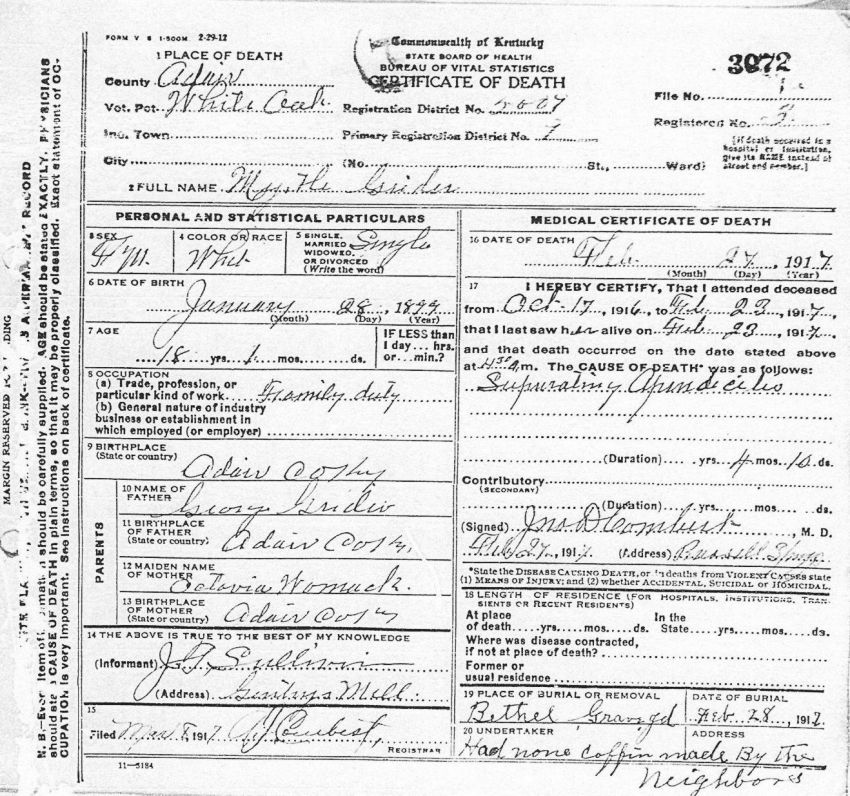 FORM V S 1-500M 2-29-12
Commonwealth of Kentucky
STATE BOARD OF HEALTH
BUREAU OF VITAL STATISTICS
CERTIFICATE OF DEATH
3072
1 PLACE OF DEATH
County Adair
Vot. Pct. White Oak
Inc. Town
City (No. St., Ward)
Registration District No.
Primary Registration District No. 7
File No. 1
Registered No. 2
[If death occurred in a hospital or institution, give its NAME instead of street and number.]
2 FULL NAME Myrtle Grider
PERSONAL AND STATISTICAL PARTICULARS
3 SEX
4 COLOR OR RACE Whit
5 SINGLE, MARRIED WIDOWED, OR DIVORCED (Write the word) Single
6 DATE OF BIRTH
January 28, 1899
(Month) (Day) (Year)
7 AGE
18 yrs. 1 mos. ds.
IF LESS than 1 day... hrs. or... min.?
8 OCCUPATION
(a) Trade, profession, or particular kind of work Family duty
(b) General nature of industry business or establishment in which employed (or employer)
9 BIRTHPLACE
(State or country) Adair
PARENTS
10 NAME OF FATHER George Grider
11 BIRTHPLACE OF FATHER (State or country) Adair
12 MAIDEN NAME OF MOTHER Octavia Womack
13 BIRTHPLACE OF MOTHER (State or country) Adair
14 THE ABOVE IS TRUE TO THE BEST OF MY KNOWLEDGE
(Informant) Sullivin
(Address) Gentrys Mill
15
Filed 1917 REGISTRAR
11-5184
MEDICAL CERTIFICATE OF DEATH
16 DATE OF DEATH
Feb 27, 1917
(Month) (Day) (Year)
17 I HEREBY CERTIFY, That I attended deceased
from Oct 17, 1916, to Feb 23, 1917,
that I last saw her alive on Feb 23, 1917,
and that death occurred on the date stated above
at m. The CAUSE OF DEATH* was as follows:
Supurating Apindicitis
(Duration) yrs. 4 mos. 10 ds.
Contributory
(SECONDARY)
(Duration) yrs. mos. ds.
(Signed) Jno D Combest, M. D.
Feb 27, 1917. (Address) Russell
*State the DISEASE CAUSING DEATH, or in deaths from VIOLENT CAUSES state
(1) MEANS OF INJURY; and (2) whether ACCIDENTAL, SUICIDAL or HOMICIDAL.
18 LENGTH OF RESIDENCE (FOR HOSPITALS, INSTITUTIONS, TRANSIENTS OR RECENT RESIDENTS)
At place of death yrs. mos. ds. In the State yrs. mos. ds.
Where was disease contracted, if not at place of death?
Former or usual residence
19 PLACE OF BURIAL OR REMOVAL
Bethel Graveyd
DATE OF BURIAL
Feb 28, 1917
20 UNDERTAKER
ADDRESS
Had none coffin made By the
Neighbors
MARGIN RESERVED FOR BINDING
N. B.—Every item of information should be carefully supplied. AGE should be stated EXACTLY. PHYSICIANS
should state CAUSE OF DEATH in plain terms, so that it may be properly classified. Exact statement of OC-
CUPATION is very important. See instructions on back of certificate.